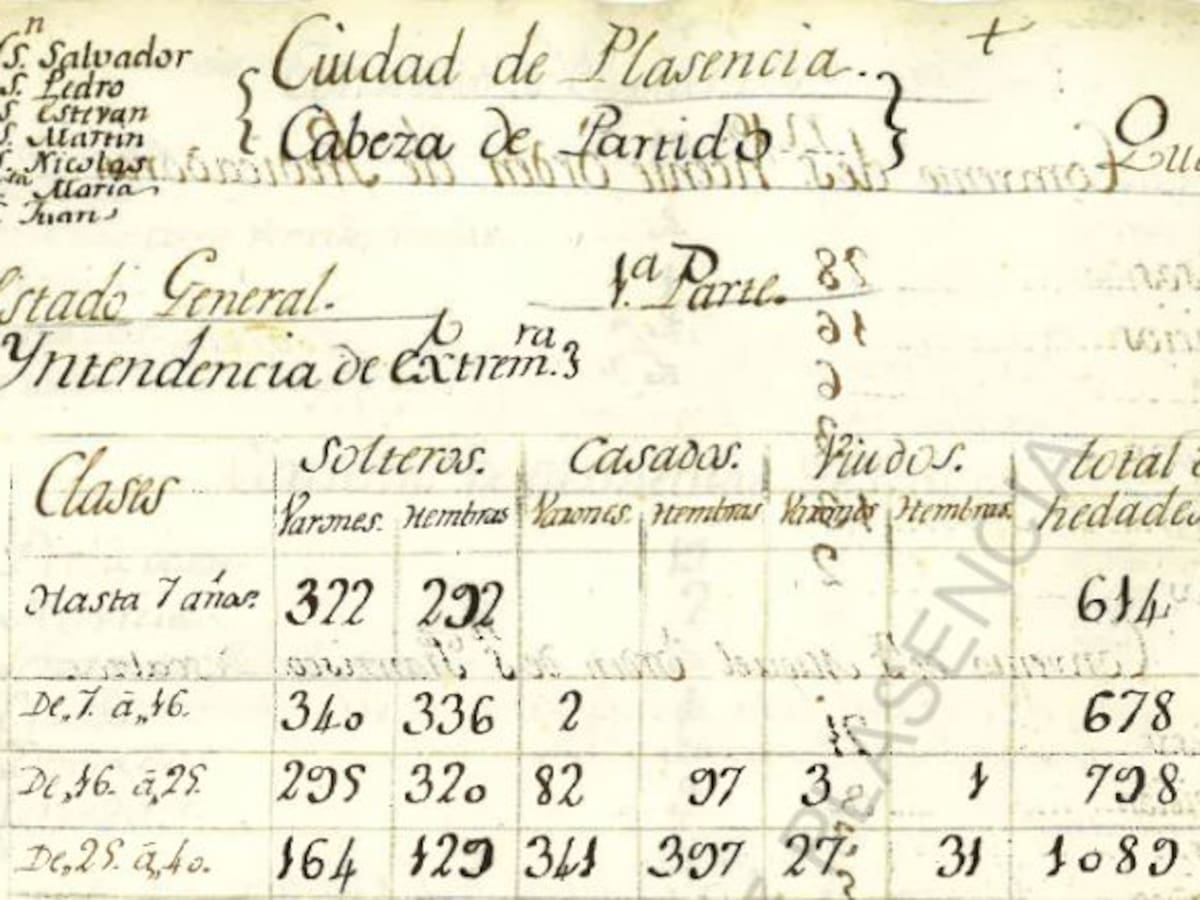 n
S. Salvador
S. Pedro
S. Estevan
S. Martin
S. Nicolas
Sta Maria
S. Juan
Ciudad de Plasencia.
Cabeza de Partido
Estado General.
1.a Parte.
Yntendencia de Extrem.ra
Clases Solteros. Casados. Viudos. total
Varones. Hembras Varones. Hembras Varones Hembras hedades
Hasta 7 años. 322 292 614
De,,7. à,,16. 340 336 2 678
De,,16. à,,25. 295 320 82 97 3 1 798
De,,25. à,,40. 164 129 341 397 27 31 1089
PLASENCIA